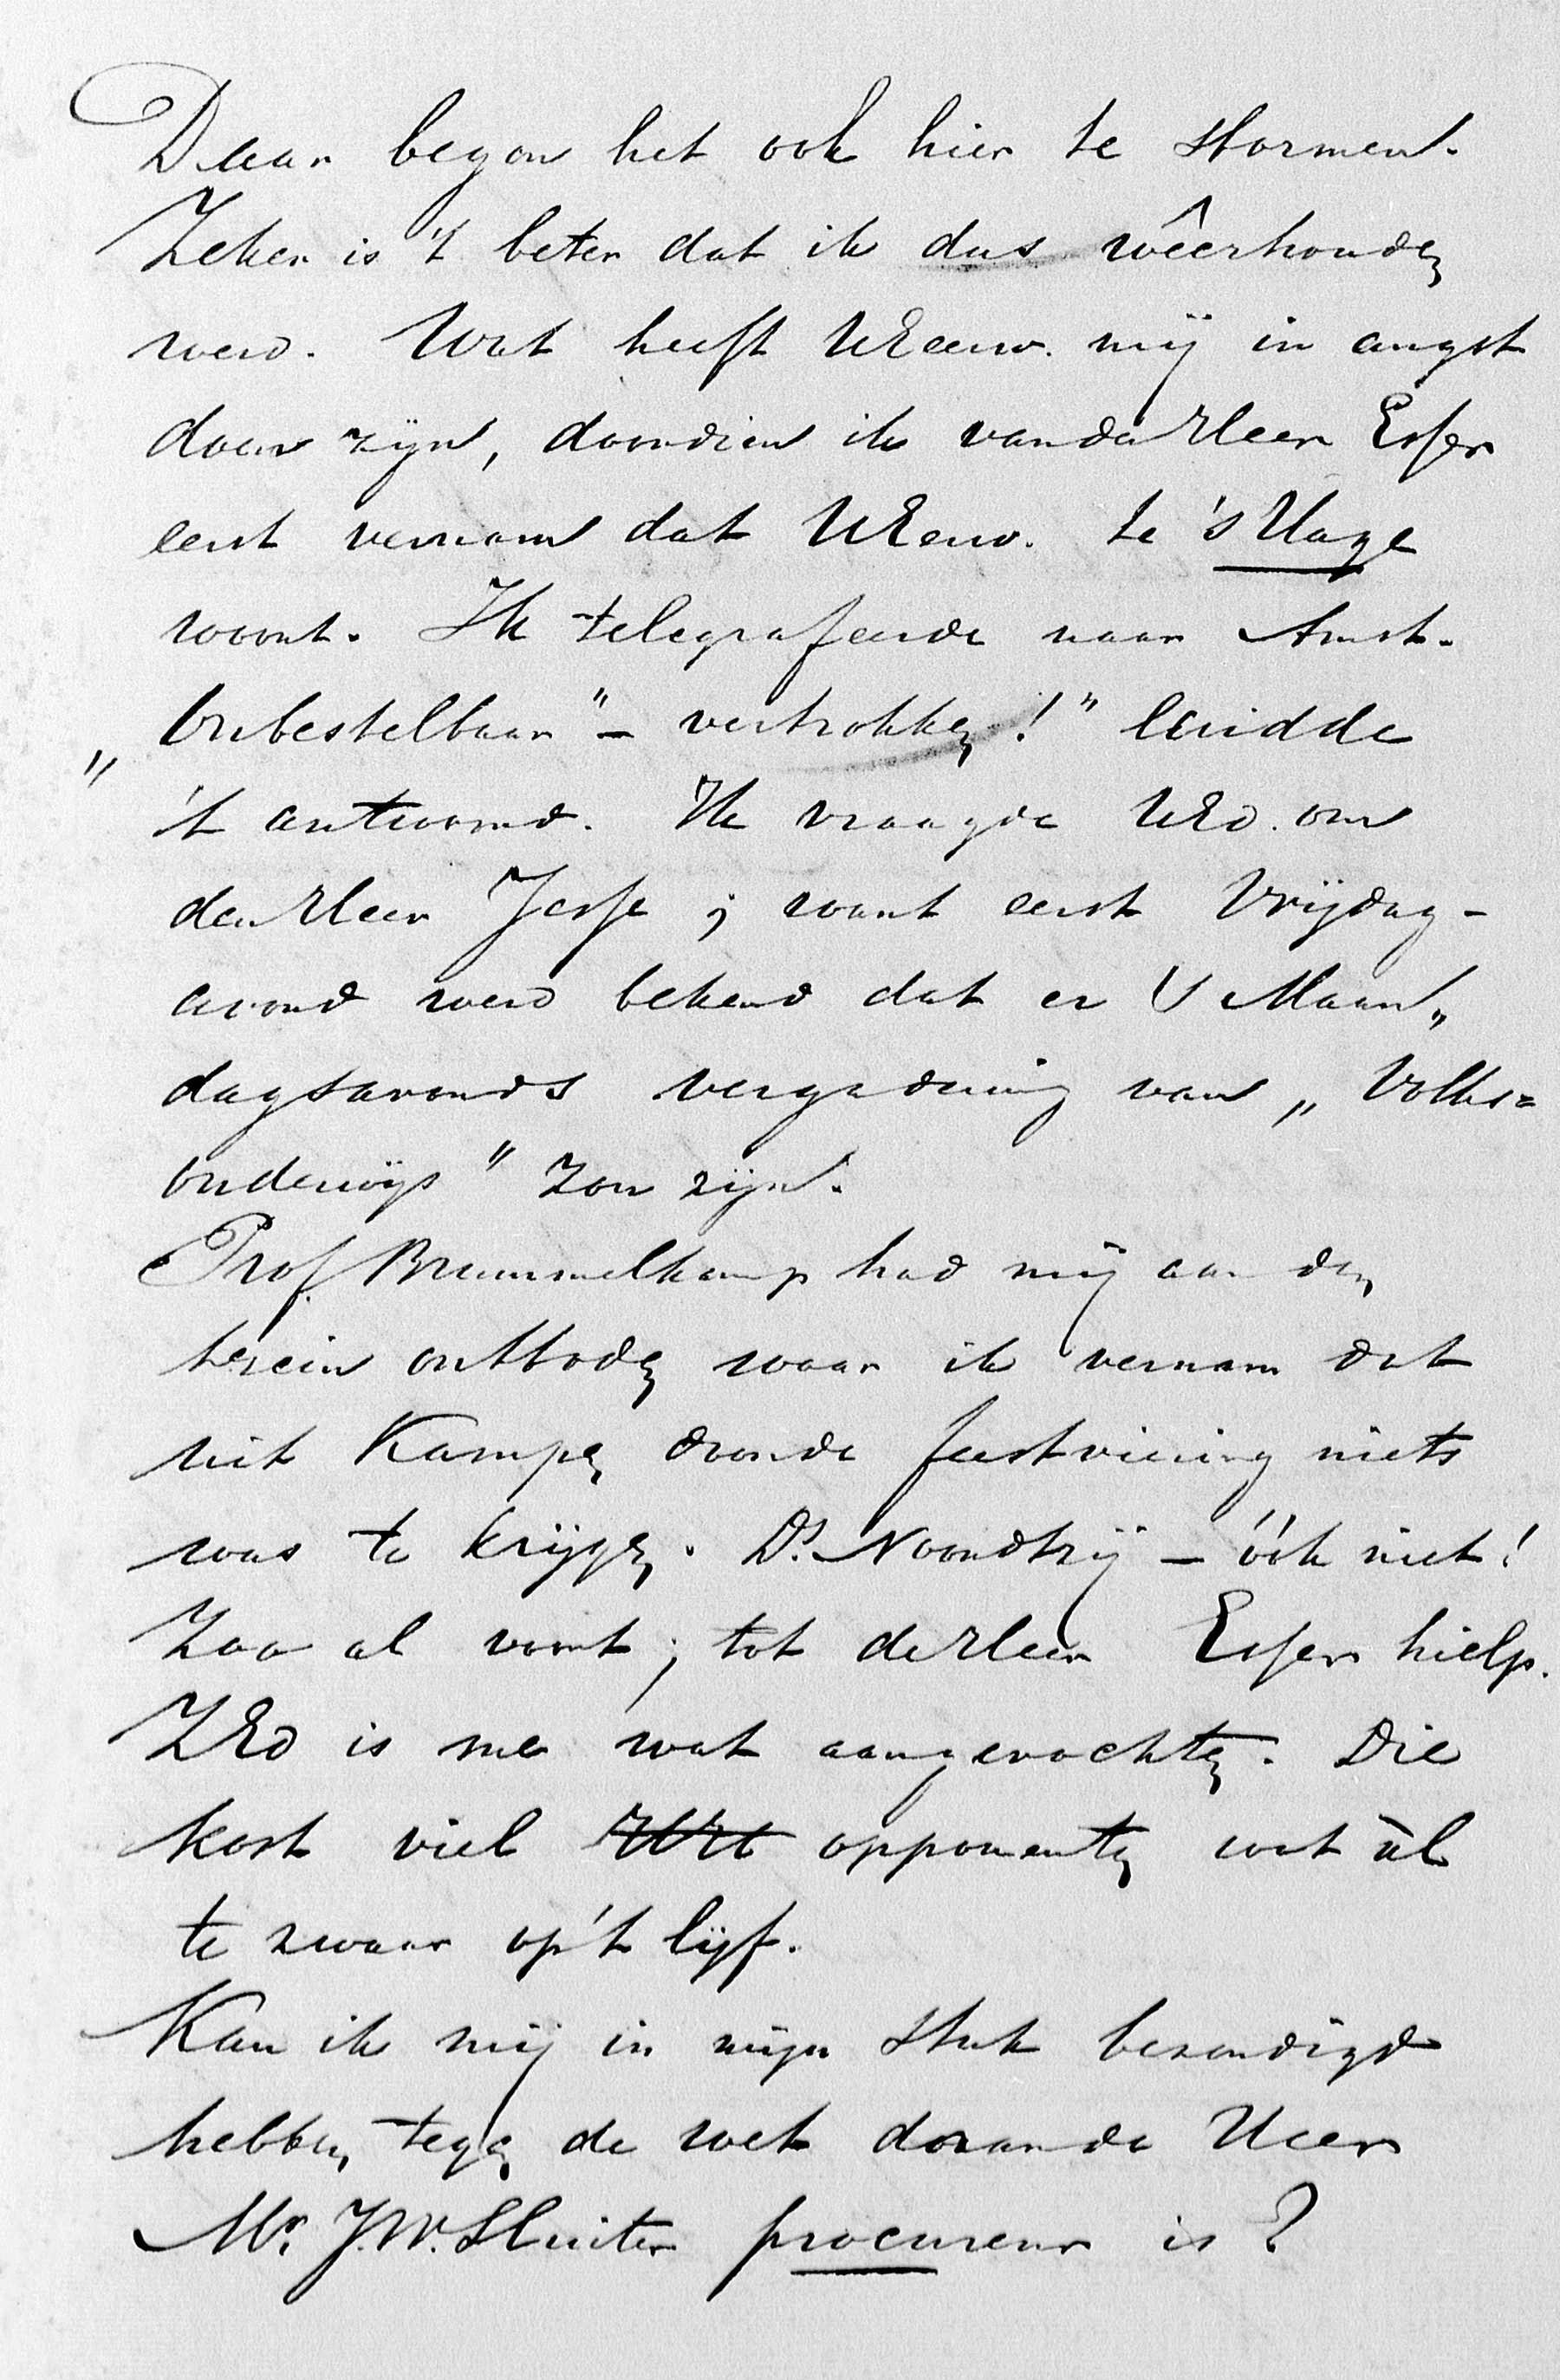 Daar begon het ook hier te stormen.
Zeker is 't beter dat ik dus wêerhouden
werd. Wat heeft UEeerw. mij in angst
doen zijn, doordien ik van den Heer Esser
eerst vernam dat UEerw. te 's Hage
woont. Ik telegrafeerde naar Amst.
„Onbestelbaar" – vertrokken!" luidde
't antwoord. Ik vraagde UEd. om
den Heer Jesse; want eerst Vrijdag-
avond werd bekend dat er 's Maan„
dagsavonds vergadering van „Volks=
onderwijs" zou zijn.
Prof. Brummelkamp had mij aan den
trein ontboden waar ik vernam dat
uit Kampen door de feestviering niets
was te krijgen. Ds. Noordtzij – óók niet!
Zoo al voort; tot de Heer Esser hielp.
ZEd is me wat aangevochten. Die
kost viel opponenten wat àl
te zwaar op 't lijf.
Kan ik mij in mijn stuk bezondigd
hebben tegen de wet de Heer
Mr. J.W. Sluiter procureur is?